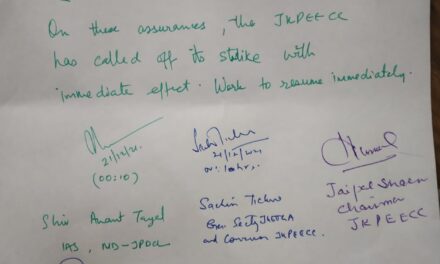 On these assurances, the JKPEECC
has called off its strike with
immediate effect. Work to resume immediately.
21/12/21
(00:10)
21/12/2021
Shiv Anant Tayal
IAS, MD-JPDCL
Sachin Tickoo
Gen Secty
and Convenor JKPEECC.
Jaipal Sharma
Chairman
JKPEECC